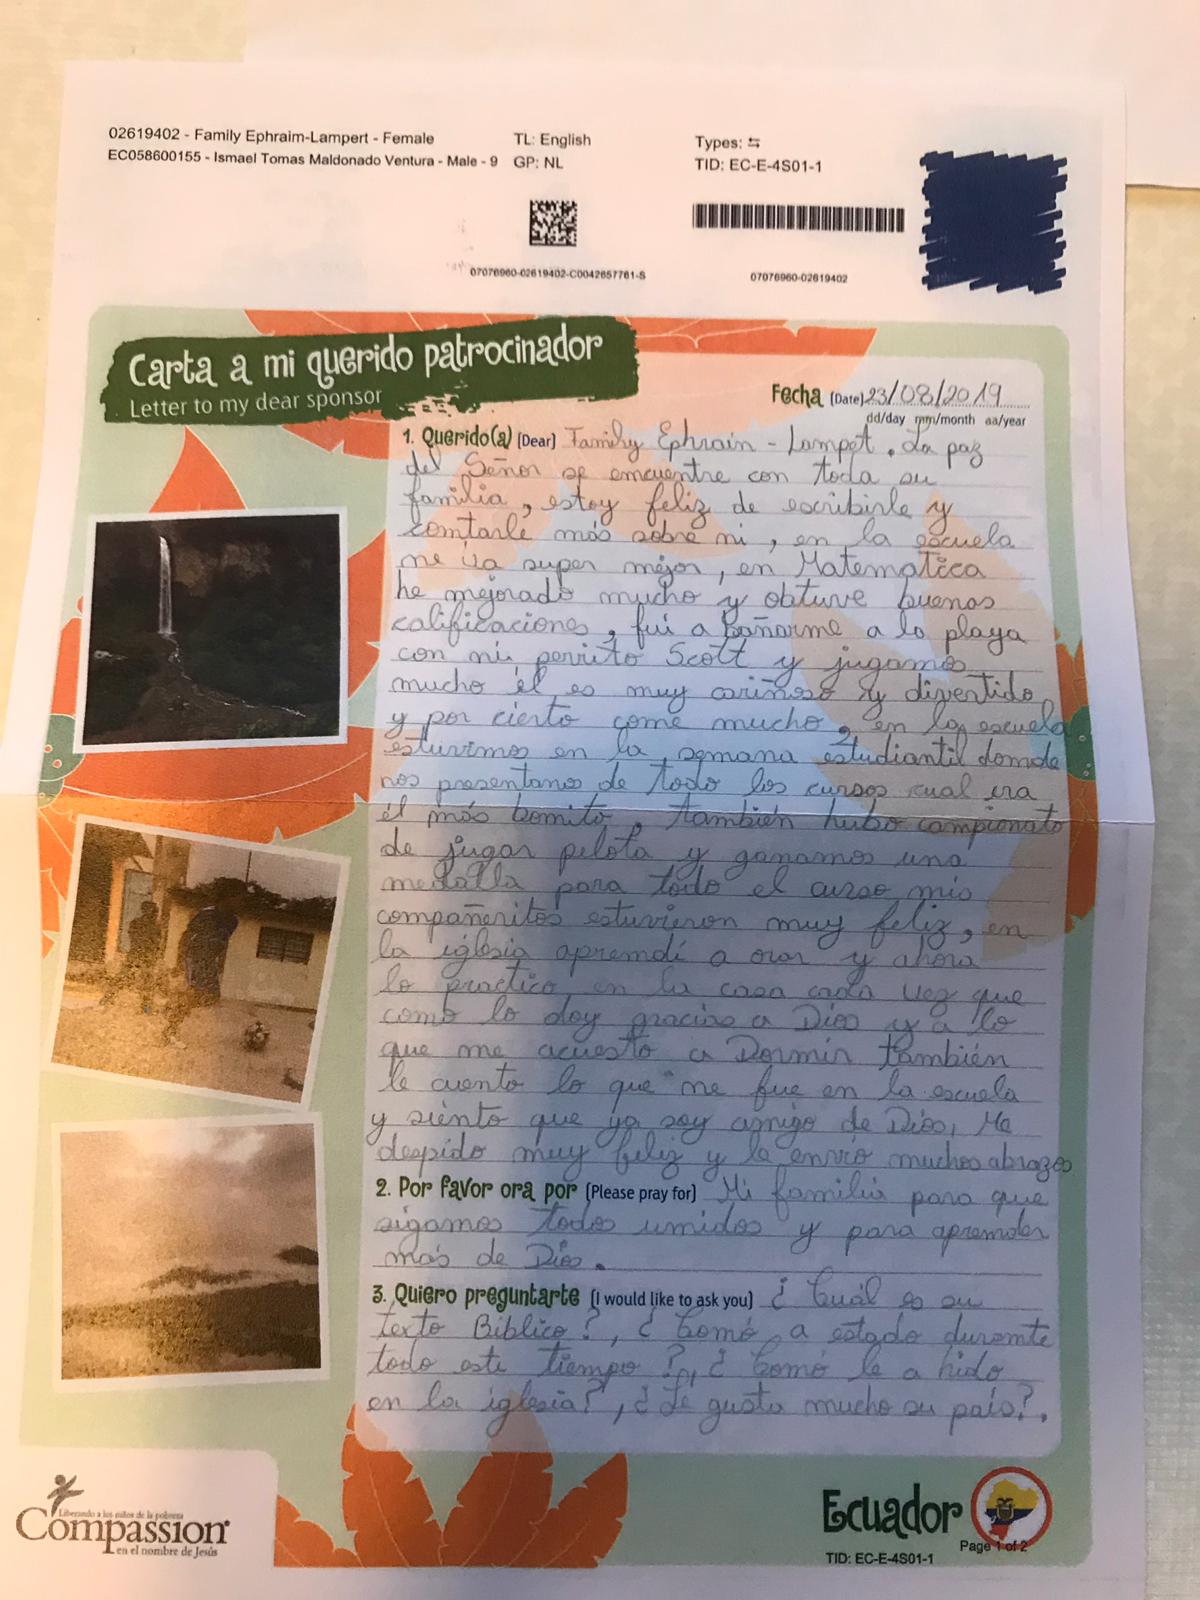 02619402 - Family Ephraim-Lampert - Female
TL: English
Types: ⇆
EC058600155 - Ismael Tomas Maldonado Ventura - Male - 9
GP: NL
TID: EC-E-4S01-1
07076960-02619402-C0042657761-S
07076960-02619402
Carta a mi querido patrocinador
Letter to my dear sponsor
Fecha (Date) 23/08/2019
dd/day mm/month aa/year
1. Querido(a) (Dear) Family Ephrain - Lampet. La paz
del Señor se encuentre con toda su
familia, estoy feliz de escribirle y
contarle más sobre mi, en la escuela
me va super mejor, en Matematica
he mejorado mucho y obtuve buenas
calificaciones, fui a bañarme a la playa
con mi perrito Scott y jugamos
mucho él es muy cariñoso y divertido
y por cierto come mucho, en la escuela
estuvimos en la semana estudiantil donde
nos presentanos de todo los cursos cual era
él más bonito. también hubo campionato
de jugar pelota y ganamos una
medalla para todo el curso mis
compañeritos estuvieron muy feliz, en
la iglesia aprendí a orar y ahora
lo practico en la casa cada vez que
como lo doy gracias a Dios y a lo
que me acuesto a Dormir también
le cuento lo que me fue en la escuela
y siento que ya soy amigo de Dios, Me
despido muy feliz y le envio muchos abrazos
2. Por favor ora por (Please pray for) Mi familia para que
sigamos todos unidos y para aprender
más de Dios.
3. Quiero preguntarte (I would like to ask you) ¿Cuál es su
texto Bíblico?, ¿Comó a estado durante
todo este tiempo?, ¿Comó le a hido
en la iglesia?, ¿Le gusta mucho su país?.
Liberando a los niños de la pobreza
Compassion
en el nombre de Jesús
Ecuador
Page 1 of 2
TID: EC-E-4S01-1